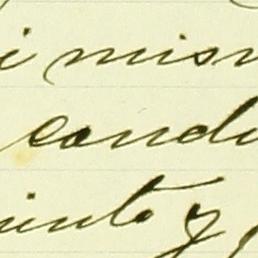 i mism
condu
iento y